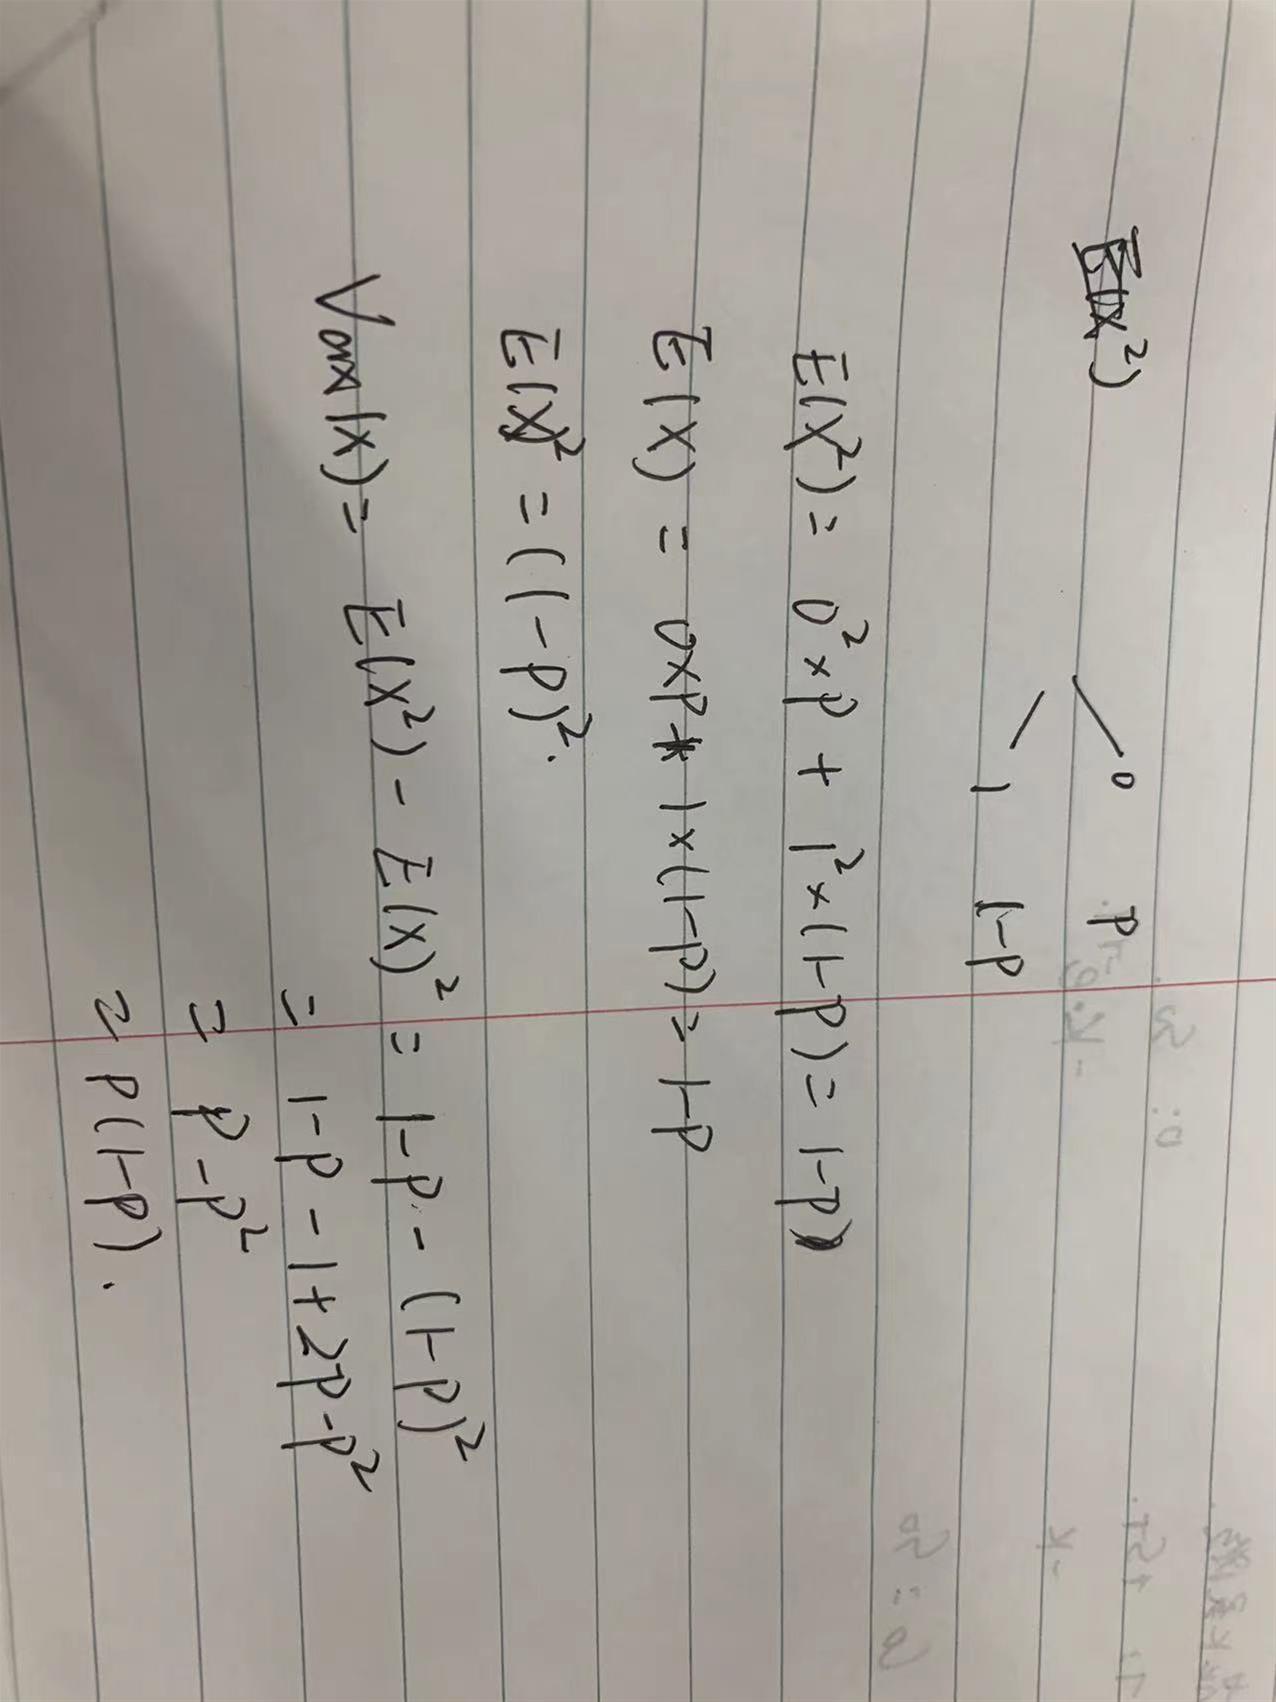 E(x²)
0 p
1 1-p
E(X²) = 0² × p + 1² × (1-p) = 1-p
E(X) = 0×p + 1×(1-p) = 1-p
E(X)² = (1-p)².
Var(X) = E(X²) - E(X)² = 1-p - (1-p)²
= 1-p - 1 + 2p - p²
= p - p²
= p(1-p).